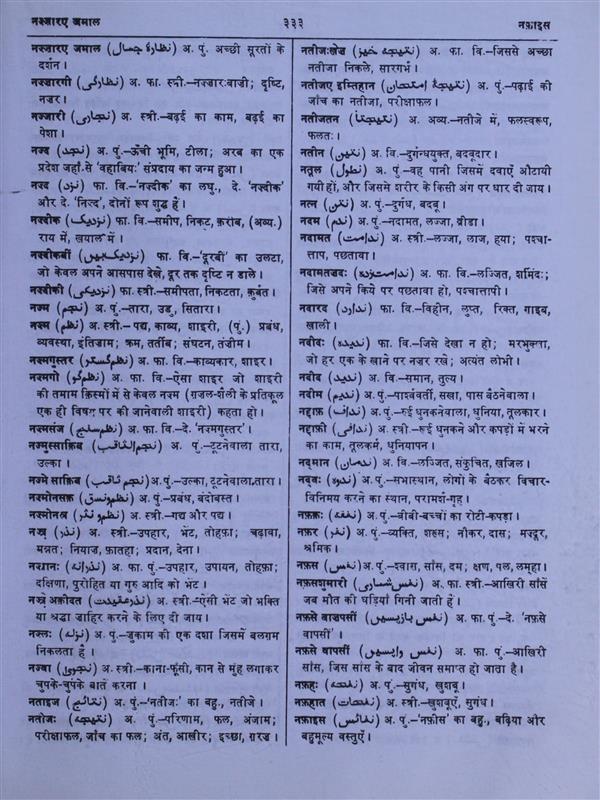 नज़्ज़ारए जमाल ३३३ नफ़ाइस
नज़्ज़ारए जमाल (نظارۂ جمال) अ. पुं. अच्छी सूरतों के
दर्शन।
नज़्ज़ारगी (نظارگی) अ. फा. स्त्री.–नज़्ज़ारःबाज़ी; दृष्टि,
नज़र।
नज्जारी (نجاری) अ. स्त्री.–बढ़ई का काम, बढ़ई का
पेशा।
नज्द (نجد) अ. पुं.–ऊँची भूमि, टीला; अरब का एक
प्रदेश जहाँ से 'वहाबियः' संप्रदाय का जन्म हुआ।
नज़्द (نزد) फा. वि.–'नज़्दीक' का लघु., दे. 'नज़्दीक'
और दे. 'निज़्द', दोनों रूप शुद्ध हैं।
नज़्दीक (نزدیک) फा. वि.–समीप, निकट, क़रीब, (अव्य.)
राय में, ख़याल में।
नज़्दीकबीं (نزدیک بیں) फा. वि.–'दूरबीं' का उलटा,
जो केवल अपने आसपास देखे, दूर तक दृष्टि न डाले।
नज़्दीकी (نزدیکی) फा. स्त्री.–समीपता, निकटता, क़ुर्बत।
नज्म (نجم) अ. पुं.–तारा, उडु, सितारा।
नज़्म (نظم) अ. स्त्री.–पद्य, काव्य, शाइरी, (पुं.) प्रबंध,
व्यवस्था, इंतिज़ाम; क्रम, तर्तीब; संघटन, तंज़ीम।
नज़्मगुस्तर (نظم گستر) अ. फा. वि.–काव्यकार, शाइर।
नज़्मगो (نظم گو) अ. फा. वि.–ऐसा शाइर जो शाइरी
की तमाम क़िस्मों में से केवल नज़्म (ग़ज़ल-शैली के प्रतिकूल
एक ही विषय पर की जानेवाली शाइरी) कहता हो।
नज़्मसंज (نظم سنج) अ. फा. वि.–दे. 'नज़्मगुस्तर'।
नज्मुस्साक़िब (نجم الثاقب) अ. पुं.–टूटनेवाला तारा,
उल्का।
नज्मे साक़िब (نجم ثاقب) अ. पुं.–उल्का, टूटनेवाला तारा।
नज़्मोनसक़ (نظم ونسق) अ. पुं.–प्रबंध, बंदोबस्त।
नज़्मोनस्र (نظم ونثر) अ. स्त्री.–गद्य और पद्य।
नज़्र (نذر) अ. स्त्री.–उपहार, भेंट, तोहफ़ा; चढ़ावा,
मन्नत; नियाज़, फ़ातहा; प्रदान, देना।
नज़्रानः (نذرانہ) अ. फा. पुं.–उपहार, उपायन, तोहफ़ा;
दक्षिणा, पुरोहित या गुरु आदि को भेंट।
नज़्रे अक़ीदत (نذر عقیدت) अ. स्त्री.–ऐसी भेंट जो भक्ति
या श्रद्धा ज़ाहिर करने के लिए दी जाय।
नज़्लः (نزلہ) अ. पुं.–ज़ुकाम की एक दशा जिसमें बलग़म
निकलता है।
नज्वा (نجویٰ) अ. स्त्री.–काना-फूसी, कान से मुंह लगाकर
चुपके-चुपके बातें करना।
नताइज (نتائج) अ. पुं.–'नतीजः' का बहु., नतीजे।
नतीजः (نتیجہ) अ. पुं.–परिणाम, फल, अंजाम;
परीक्षाफल, जाँच का फल; अंत, आख़ीर; इच्छा, ग़रज़।
नतीजःख़ेज़ (نتیجہ خیز) अ. फा. वि.–जिससे अच्छा
नतीजा निकले, सारगर्भ।
नतीजए इम्तिहान (نتیجۂ امتحان) अ. पुं.–पढ़ाई की
जाँच का नतीजा, परीक्षाफल।
नतीजतन (نتیجتاً) अ. अव्य.–नतीजे में, फलस्वरूप,
फलतः।
नतीन (نتین) अ. वि.–दुर्गन्धयुक्त, बदबूदार।
नतूल (نطول) अ. पुं.–वह पानी जिसमें दवाएँ औटायी
गयी हों, और जिससे शरीर के किसी अंग पर धार दी जाय।
नत्न (نتن) अ. पुं.–दुर्गंध, बदबू।
नदम (ندم) अ. पुं.–नदामत, लज्जा, व्रीडा।
नदामत (ندامت) अ. स्त्री.–लज्जा, लाज, हया; पश्चा-
त्ताप, पछतावा।
नदामतज़दः (ندامت زدہ) अ. फा. वि.–लज्जित, शर्मिंदः;
जिसे अपने किये पर पछतावा हो, पश्चात्तापी।
नदारद (ندارد) फा. वि.–विहीन, लुप्त, रिक्त, ग़ाइब,
ख़ाली।
नदीदः (ندیدہ) फा. वि.–जिसे देखा न हो; मरभुक्खा,
जो हर एक के खाने पर नज़र रखे; अत्यंत लोभी।
नदीद (ندید) अ. वि.–समान, तुल्य।
नदीम (ندیم) अ. पुं.–पार्श्ववर्ती, सखा, पास बैठनेवाला।
नद्दाफ़ (نداف) अ. पुं.–रूई धुनकनेवाला, धुनिया, तूलकार।
नद्दाफ़ी (ندافی) अ. स्त्री.–रूई धुनकने और कपड़ों में भरने
का काम, तूलकर्म, धुनियापन।
नद्मान (ندمان) अ. वि.–लज्जित, संकुचित, ख़जिल।
नद्वः (ندوہ) अ. पुं.–सभास्थान, लोगों के बैठकर विचार-
विनिमय करने का स्थान, परामर्श-गृह।
नफ़क़ः (نفقہ) अ. पुं.–बीबी-बच्चों का रोटी-कपड़ा।
नफ़र (نفر) अ. पुं.–व्यक्ति, शख़्स; नौकर, दास; मज़्दूर,
श्रमिक।
नफ़स (نفس) अ. पुं.–श्वास, साँस, दम; क्षण, पल, लम्हा।
नफ़सशुमारी (نفس شماری) अ. फा. स्त्री.–आख़िरी साँसें
जब मौत की घड़ियाँ गिनी जाती हैं।
नफ़से बाज़पसीं (نفس بازپسیں) अ. फा. पुं.–दे. 'नफ़से
वापसीं'।
नफ़से वापसीं (نفس واپسیں) अ. फा. पुं.–आख़िरी
साँस, जिस साँस के बाद जीवन समाप्त हो जाता है।
नफ़्हः (نفحہ) अ. पुं.–सुगंध, ख़ुशबू।
नफ़्हात (نفحات) अ. स्त्री.–ख़ुशबूएँ, सुगंध।
नफ़ाइस (نفائس) अ. पुं.–'नफ़ीस' का बहु., बढ़िया और
बहुमूल्य वस्तुएँ।